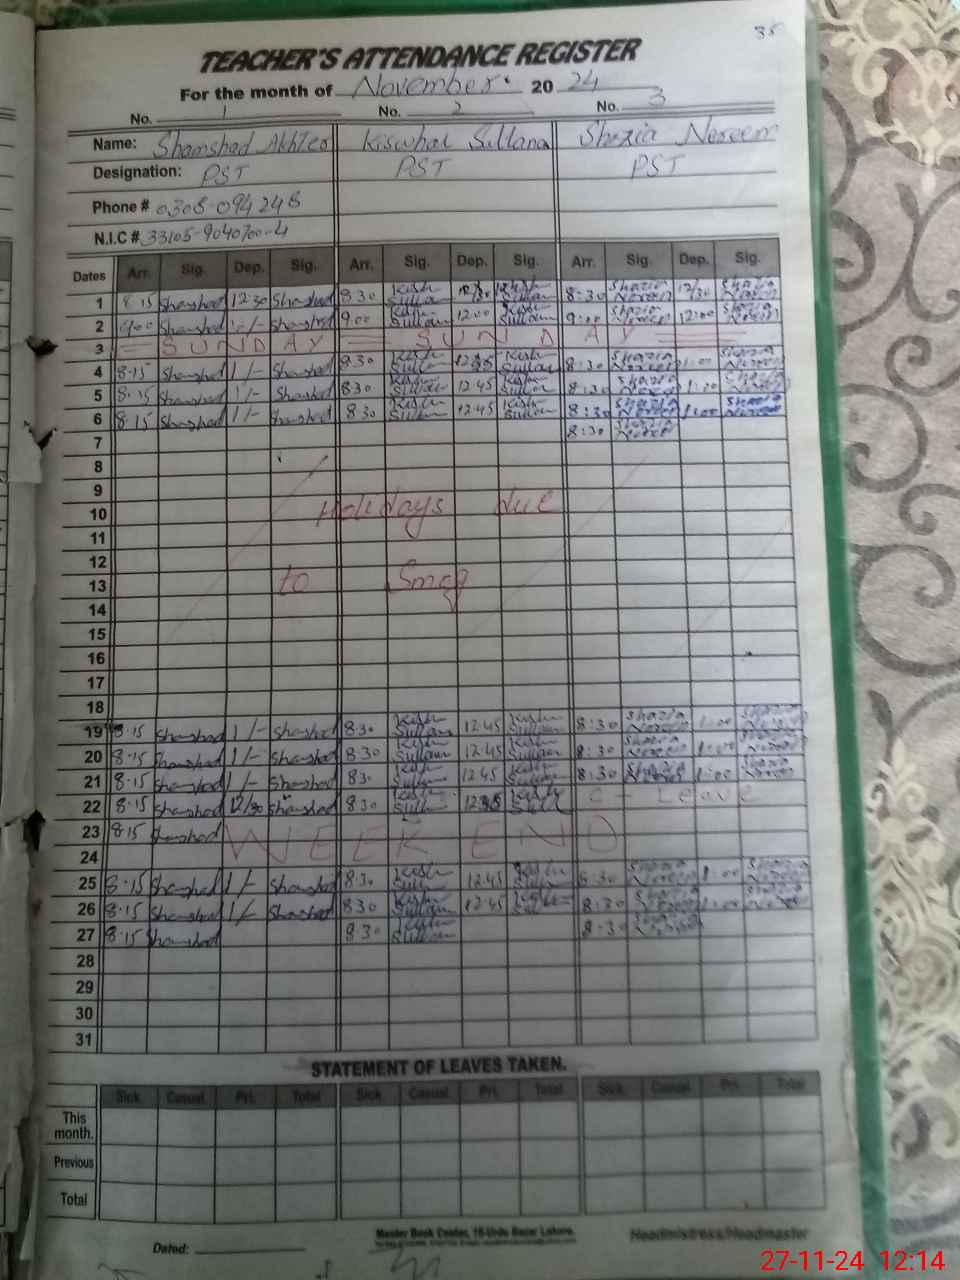 35
TEACHER'S ATTENDANCE REGISTER
For the month of November. 20 24
No. 1 No. 2 No. 3
Name: Shamshad Akhter Kiswhat Sultana Shazia Noreen
Designation: PST PST PST
Phone # 0308-094248
N.I.C # 33105-9040700-4
Dates Arr. Sig. Dep. Sig. Arr. Sig. Dep. Sig. Arr. Sig. Dep. Sig.
1 8.15 Shamshad 12:30 Shamshad 8 30 Kish Sultan Kish Sultan 8:30 Shazia Noreen 12/30 Shazia Noreen
2 9.00 Shamshad Shamshad 9.00 Kish Sultan 12.00 Kish Sultan 9:00 Shazia Noreen 12:00 Shazia Noreen
3 = SUNDAY = SUNDAY =
4 8.15 Shamshad 1/- Shamshad 8.30 Kish Sultan Kish Sultan 8:30 Shazia Noreen 1:00 Shazia Noreen
5 8.15 Shamshad 1/- Shamshad 830 Kish Sultan 12 45 Kish Sultan 8:30 Shazia Noreen 1:00 Shazia Noreen
6 8.15 Shamshad 1/- Shamshad 8.30 Kish Sultan 12.45 Kish Sultan 8:30 Shazia Noreen 1:00 Shazia Noreen
7 8:30 Shazia Noreen
8
9
10 Holidays due
11
12
13 to Smog
14
15
16
17
18
19 8.15 Shamshad 1/- Shamshad 8.30 Kish Sultan 12.45 Kish Sultan 8:30 Shazia Noreen 1:00 Shazia Noreen
20 8.15 Shamshad 1/- Shamshad 8.30 Kish Sultan 12.45 Kish Sultan 8:30 Shazia Noreen 1:00 Shazia Noreen
21 8.15 Shamshad 1/- Shamshad 8.30 Kish Sultan 12 45 Kish Sultan 8:30 Shazia Noreen 1:00 Shazia Noreen
22 8.15 Shamshad 12/30 Shamshad 8.30 Kish Sult C - Leave
23 8.15 Shamshad WEEK END
24
25 8.15 Shamshad 1/- Shamshad 8.30 Kish Sult 12.45 Kish Sult 8:30 Shazia Noreen 1:00 Shazia Noreen
26 8.15 Shamshad 1/- Shamshad 830 Kish Sultan 12.45 8:30 Shazia Noreen 1:00 Shazia Noreen
27 8.15 Shamshad 8 30 Kish Sultan 8:30 Shazia Noreen
28
29
30
31
STATEMENT OF LEAVES TAKEN.
Sick Casual Pri. Total Sick Casual Pri. Total Sick Casual Pri. Total
This month.
Previous
Total
Master Book Center, 16-Urdu Bazar Lahore.
Headmistress/Headmaster
Dated:
27-11-24 12:14